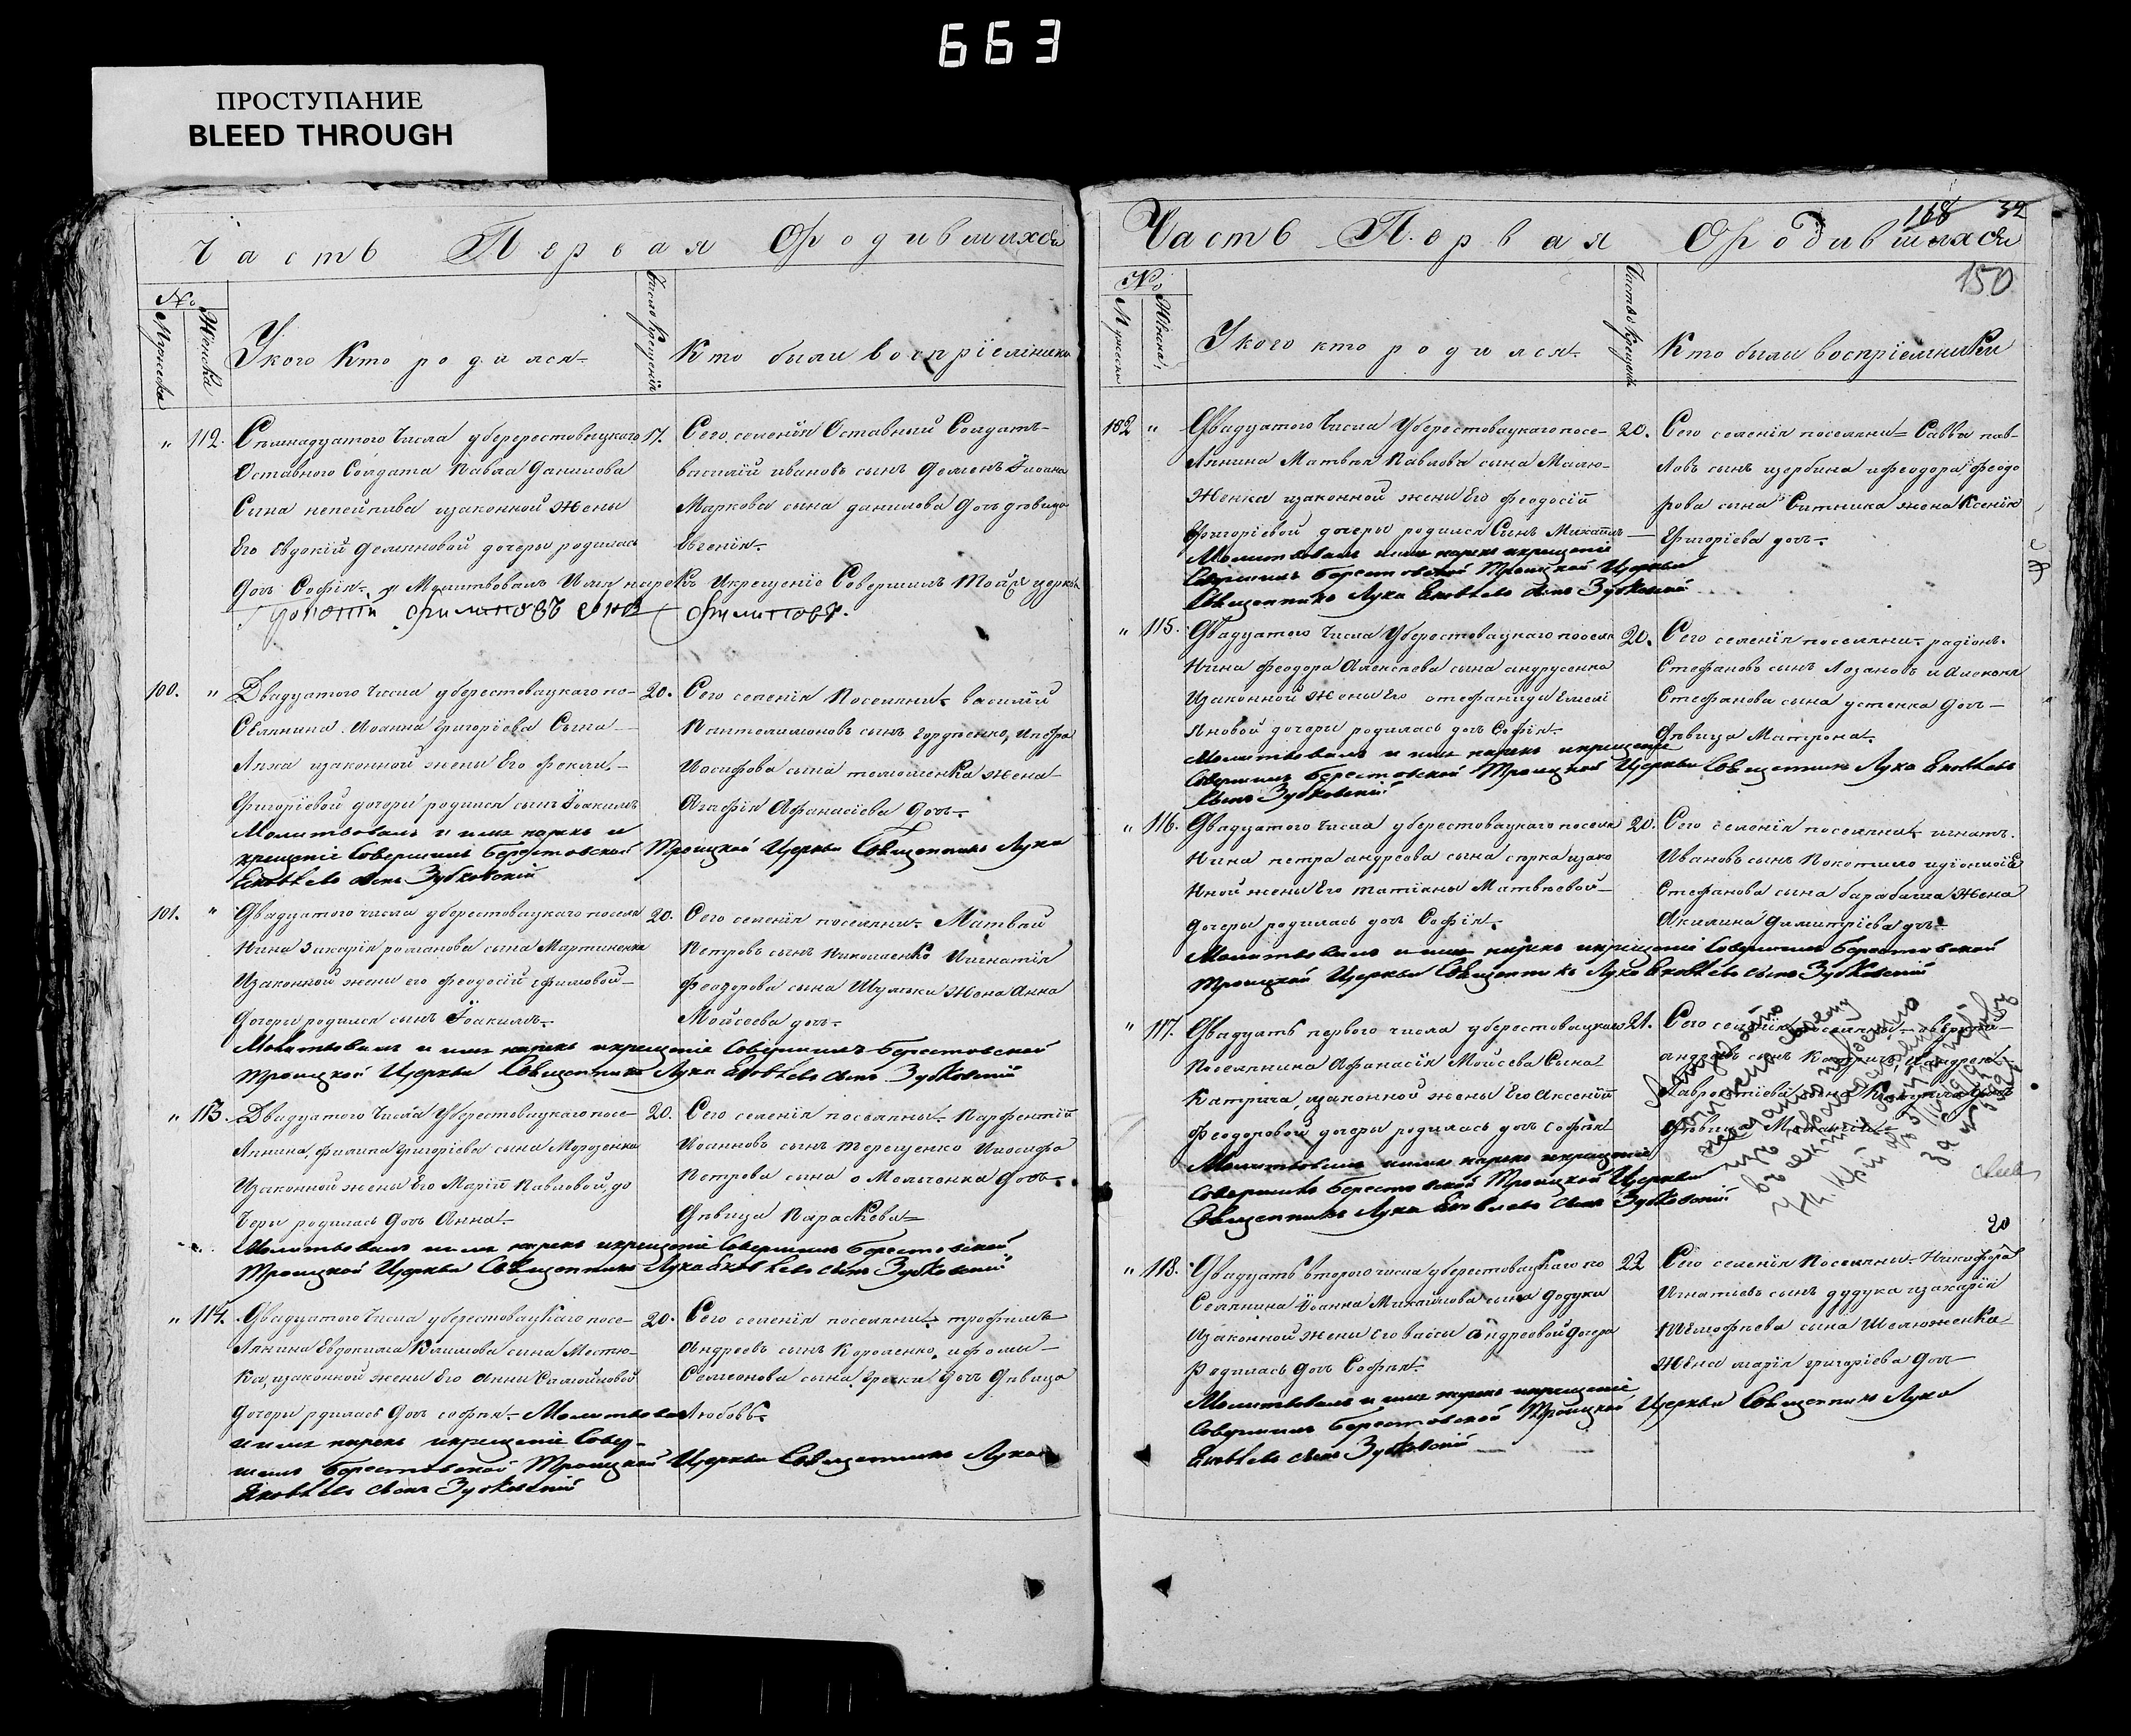 663
ПРОСТУПАНИЕ
BLEED THROUGH
Часть Первая Ородившихся
№
Мужеска
Женска
Укого Кто родился
Число Крещенія
Кто были воспріемники
" 112.
17.
Оставного Солдата Павла Данилова
Его Евдокіи Демяновой дочеры родилась
Дочь Софія. Молитвовалъ Имя нарекъ Икрещеніе Совершилъ Тойже церкви
Сего селенія Оставный Солдатъ
василій ивановъ сынъ
Маркова сына данилова дочь девица
Евгенія.
100. "
Двадцатого Числа уберестовацкаго по-
Селянина Иоанна григоріева Сына
Ляха изаконной жены Его Феклы
Григоріевой дочеры родился сынъ Іоакимъ
Молитвовалъ и имя нарекъ и
крещеніе Совершилъ Берестовской Троицкой Церкви Священникъ Лука
Яковлевъ сынъ Зубковскій
20. Сего селенія Поселяны василій
Пантелимоновъ сынъ
Иосифова сына жена
Агафія Афанасіева дочь
101. "
Двадцатого числа уберестовацкаго поселя
Нина Захарія романова сына Мартиненка
Изаконной жены его Феодосіи
Дочеры родился сынъ Іоакимъ.
Молитвовалъ и имя нарекъ икрещеніе Совершилъ Берестовской
Троицкой Церкви Священникъ Лука Яковлевъ сынъ Зубковскій
20. Сего селенія поселяны Матвей
Петровъ сынъ Николаенко Иигнатія
Феодорова сына Шульги Жена Анна
Моисеева дочь
" 113.
Двадцатого Числа Уберестовацкаго посе-
Лянина, филипа григоріева сына Морозенка
Изаконной жены Его Маріи Павловой, до
Черы родилась Дочь Анна
Молитвовалъ иимя нарекъ икрещеніе Совершилъ Берестовской
Троицкой Церкви Священникъ Лука Яковлевъ сынъ Зубковскій
20. Сего селенія поселяны Парфентій
Иоанновъ сынъ терещенко Июсифа
Петрова сына дочь
Девица Параскева
" 114.
Двадцатого Числа уберестовацкаго посе-
Лянина Евдокима Климова сына
изаконной жены Его Анны Самойловой
Дочеры рдилась Дочь софія Молитвовалъ
иимя нарекъ икрещеніе Совер-
шилъ Берестовской Троицкой Церкви Священникъ Лука
Яковлевъ сынъ Зубковскій
20. Сего селенія поселяны трофимъ
Андреевъ сынъ Короленко, ифомы
Семионова сына грека дочь Девица
Любовь
Часть Первая Ородившихся
168 32
150
№
Мужеска
Женска
Укого кто родился
Число Крещенія
Кто были воспріемники
102 "
Двадцатого Числа Уберестовацкаго посе-
Лянина Матвея Павлова сына Малю-
Женка изаконной жены Его феодосіи
Григоріевой дочеры родился Сынъ Михаилъ
Молитвовалъ иимя нарекъ икрещеніе
Совершилъ Берестовской Троицкой Церкви
Священникъ Лука Яковлевъ сынъ Зубковскій
20. Сего селенія поселяны Савва пав-
ловъ сынъ щербина ифеодора феодо
рова сына Ситника жена Ксенія
Григоріева дочь
" 115.
Двадцатого Числа Уберестовацкаго поселя
Нина Феодора Алексеева сына андрусенка
Изаконной Жены Его стефаниды Емелі
Яновой дочеры родилась дочь Софія
Молитвовалъ и имя нарекъ икрещеніе
Совершилъ Берестовской Троицкой Церкви Священникъ Лука Яковлевъ
Сынъ Зубковскій
20. Сего селенія поселяны радіонъ
Стефановъ сынъ Лозановъ
Стефанова сына устенка Дочь
Девица Матрона
" 116.
Двадцатого Числа уберестовацкаго поселя
Нина петра андреева сына изако
Нной жены Его татіаны Матвеевой
Дочеры родилась дочь Софія.
Молитвовалъ иимя нарекъ икрещеніе Совершилъ Берестовской
Троицкой Церкви Священникъ Лука Яковлевъ сынъ Зубковскій
20. Сего селенія поселяны игнатъ
Ивановъ сынъ Покотило
Стефанова сына барабаша Жена
Акилина Димитріева дочь
" 117.
Двадцать первого числа уберестовацкаго
Поселянина Афанасія Моисеева Сына
Катрича, изаконной жены Его Аксеніи
Феодоровой дочеры родилась дочь Софія
Молитвовалъ иимя нарекъ икрещеніе
Совершилъ Берестовской Троицкой Церкви
Священникъ Лука Яковлевъ Сынъ Зубковскій
21. Сего селенія поселяны
сынъ Катричъ,
20
" 118.
Двадцать второго числа уберестовацкаго по
Селянина Иоанна Михайлова сына Дудука
Изаконной Жены Его Андреевой дочеры
Родилась Дочь Софія.
Молитвовалъ и имя нарекъ икрещеніе
Совершилъ Берестовской Троицкой Церкви Священникъ Лука
Яковлевъ сынъ Зубковскій
22 Сего селенія Поселяны Никифоръ
Игнатьевъ сынъ дудука изахарія
Тимофеева сына
Жена марія григоріева дочь